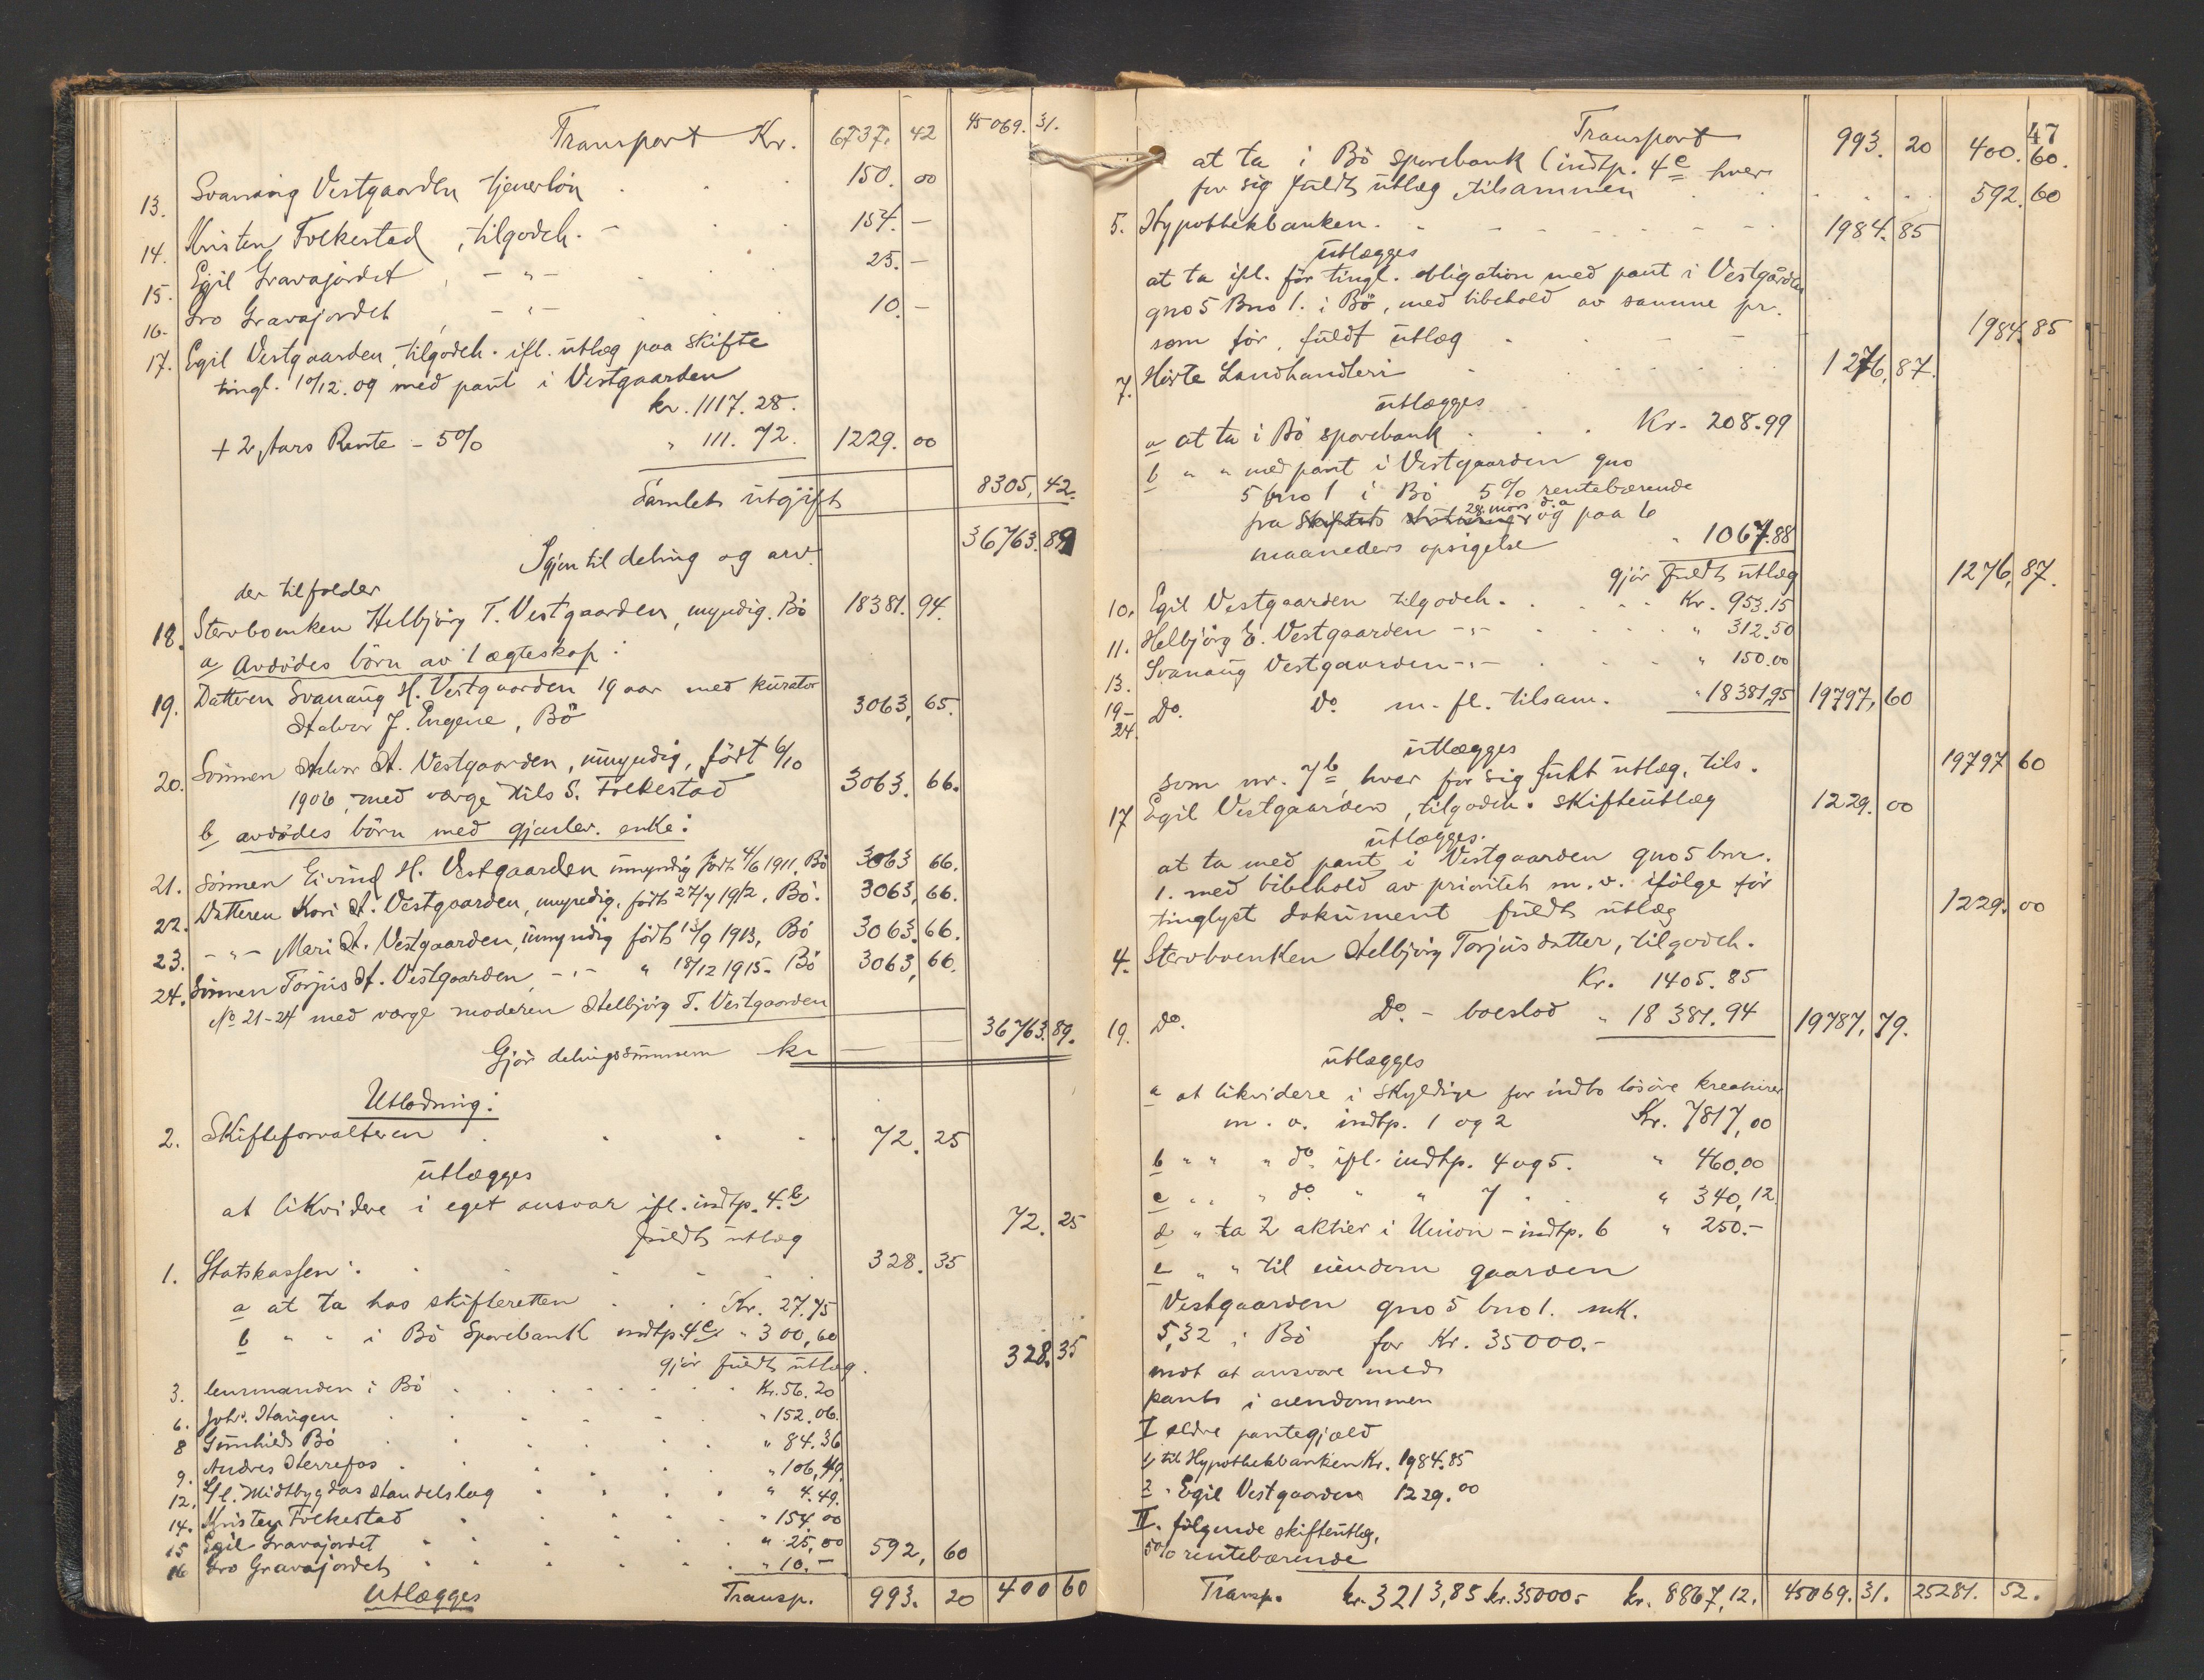 Transport Kr. 6737. 42 45069. 31.
13. Svanaug Vestgaarden tjenerløn . . . 150. 00
14. Kristen Folkestad, tilgodeh. - . . . 154. -
15. Egil Gravajordet , - " - . . . 25. -
16. Gro Gravajordet , - " - . . . 10. -
17. Egil Vestgaarden, tilgodeh. ifl. utlæg paa skifte
tingl. 10/12. 09 med pant i Vestgaarden
kr. 1117. 28.
+ 2 Aars Rente - 5% " 111. 72. 1229. 00
Samlet utgift 8305, 42.
Igjen til deling og arv 36763. 89
der tilfalder
18. Stervboenken Helbjörg T. Vestgaarden, myndig. Bö 18381. 94.
a/ Avdödes börn av 1 ægteskap:
19. Datteren Svanaug H. Vestgaarden 19 aar med kurator
Halvor J. Engene, Bö 3063, 65.
20. Sönnen Halvor H. Vestgaarden, umyndig, födt 6/10
1906, med værge Nils S. Folkestad 3063. 66.
b avdödes börn med gjenlev. enke:
21. Sönnen Eivind H. Vestgaarden umyndig födt 4/6 1911. Bö 3063 66.
22. Datteren Kari H. Vestgaarden, umyndig, födt 27/7 1912, Bö. 3063, 66.
23. - " - Mari H. Vestgaarden, umyndig födt 13/9 1913, Bö 3063. 66.
24. Sönnen Torjus H. Vestgaarden, - " - " 18/12 1915 - Bö 3063, 66.
No 21-24 med værge moderen Helbjörg T. Vestgaarden
Gjör delingssummen kr 36763. 89.
Utlodning:
2. Skifteforvalteren . . . . 72. 25
utlægges
at likvidere i eget ansvar ifl. indtp. 4.b
fuldt utlæg 72. 25
1. Statskassen . . . . . 328. 35
a at ta hos skifteretten . . . Kr. 27.75
b " " i Bö Sparebank indtp. 4c " 300,60
gjör fuldt utlæg. 328. 35
3. lensmanden i Bö . . . . . . Kr. 56. 20
6. Johs. Haugen . . . . . . " 152. 06.
8 Gunhild Bö . . . . . . " 84. 36
9. Andres Herrefos . . . . . . " 106, 49.
12. H/l. Midtbygdas Handelslag . . . . " 4. 49.
14. Kristen Folkestad . . . . . . " 154 00
15 Egil Gravajordet . . . . . . " 25, 00 592, 60
16 Gro Gravajordet . . . . . . " 10. -
utlægges Transp. 993. 20 400 60
47
Transport 993. 20 400. 60.
at ta i Bö sparebank (indtp. 4c hver
for sig fuldt utlæg tilsammen . . . . . 592. 60
5. Hypothekbanken . . - - - - - - - 1984. 85
utlægges
at ta ifl. för tingl. obligation med pant i Vestgården
gno 5 Bno 1. i Bö, med bibehold av samme pr.
som för, fuldt utlæg . . - - - 1984. 85
7. Hörte Landhandleri . . . . . . 1276, 87.
utlægges
a at ta i Bö sparebank . . . Kr. 208.99
b " " med pant i Vestgaarden gno
5 bno 1 i Bö 5% rentebærende
fra Skiftets 28 mars d. a og paa 6
maaneders opsigelse " 1067.88
gjör fuldt utlæg 1276, 87.
10. Egil Vestgaarden tilgodeh. . . . . Kr. 953.15
11. Helbjörg E. Vestgaarden - " - . . . . " 312.50
13. Svanaug Vestgaarden - " - . . . . " 150.00
19-24. Do. Do. m. fl. tilsam. " 18381,95 19797, 60
utlægges
som nr. 7b hver for sig fuldt utlæg, tils. 19797 60
17 Egil Vestgaarden, tilgodeh. skifteutlæg 1229. 00
utlægges.
at ta med pant i Vestgaarden gno 5 bnr.
1. med bibehold av prioritet m. v. ifölge för
tinglyst dokument fuldt utlæg 1229. 00
4. Stervboenken Helbjörg Torjusdatter, tilgodeh.
Kr. 1405. 85
19. Do. Do. - boeslod " 18381. 94 19787, 79.
utlægges
a at likvidere i skyldige for indbo lösöre kreaturer
m. v. indtp. 1 og 2 Kr. 7817,00
b " " " do. ifl. indtp. 4 og 5. " 460.00
c " " " do. " " 7 . . " 340, 12.
d " ta 2 aktier i Union - indtp. 6 " 250.-
e " " til eiendom gaarden
Vestgaarden gno 5 bno 1. mk.
5,32 i Bö for Kr. 35000.-
mot at ansvare med
pant i eiendommen
I ældre pantegjæld
1, til Hypothekbanken Kr. 1984.85
2 " Egil Vestgaarden 1229.00
II. fölgende skifteutlæg,
5% rentebærende
Transp. kr. 3213,85 kr. 35000.- kr. 8867,12. 45069. 31. 25281. 52.